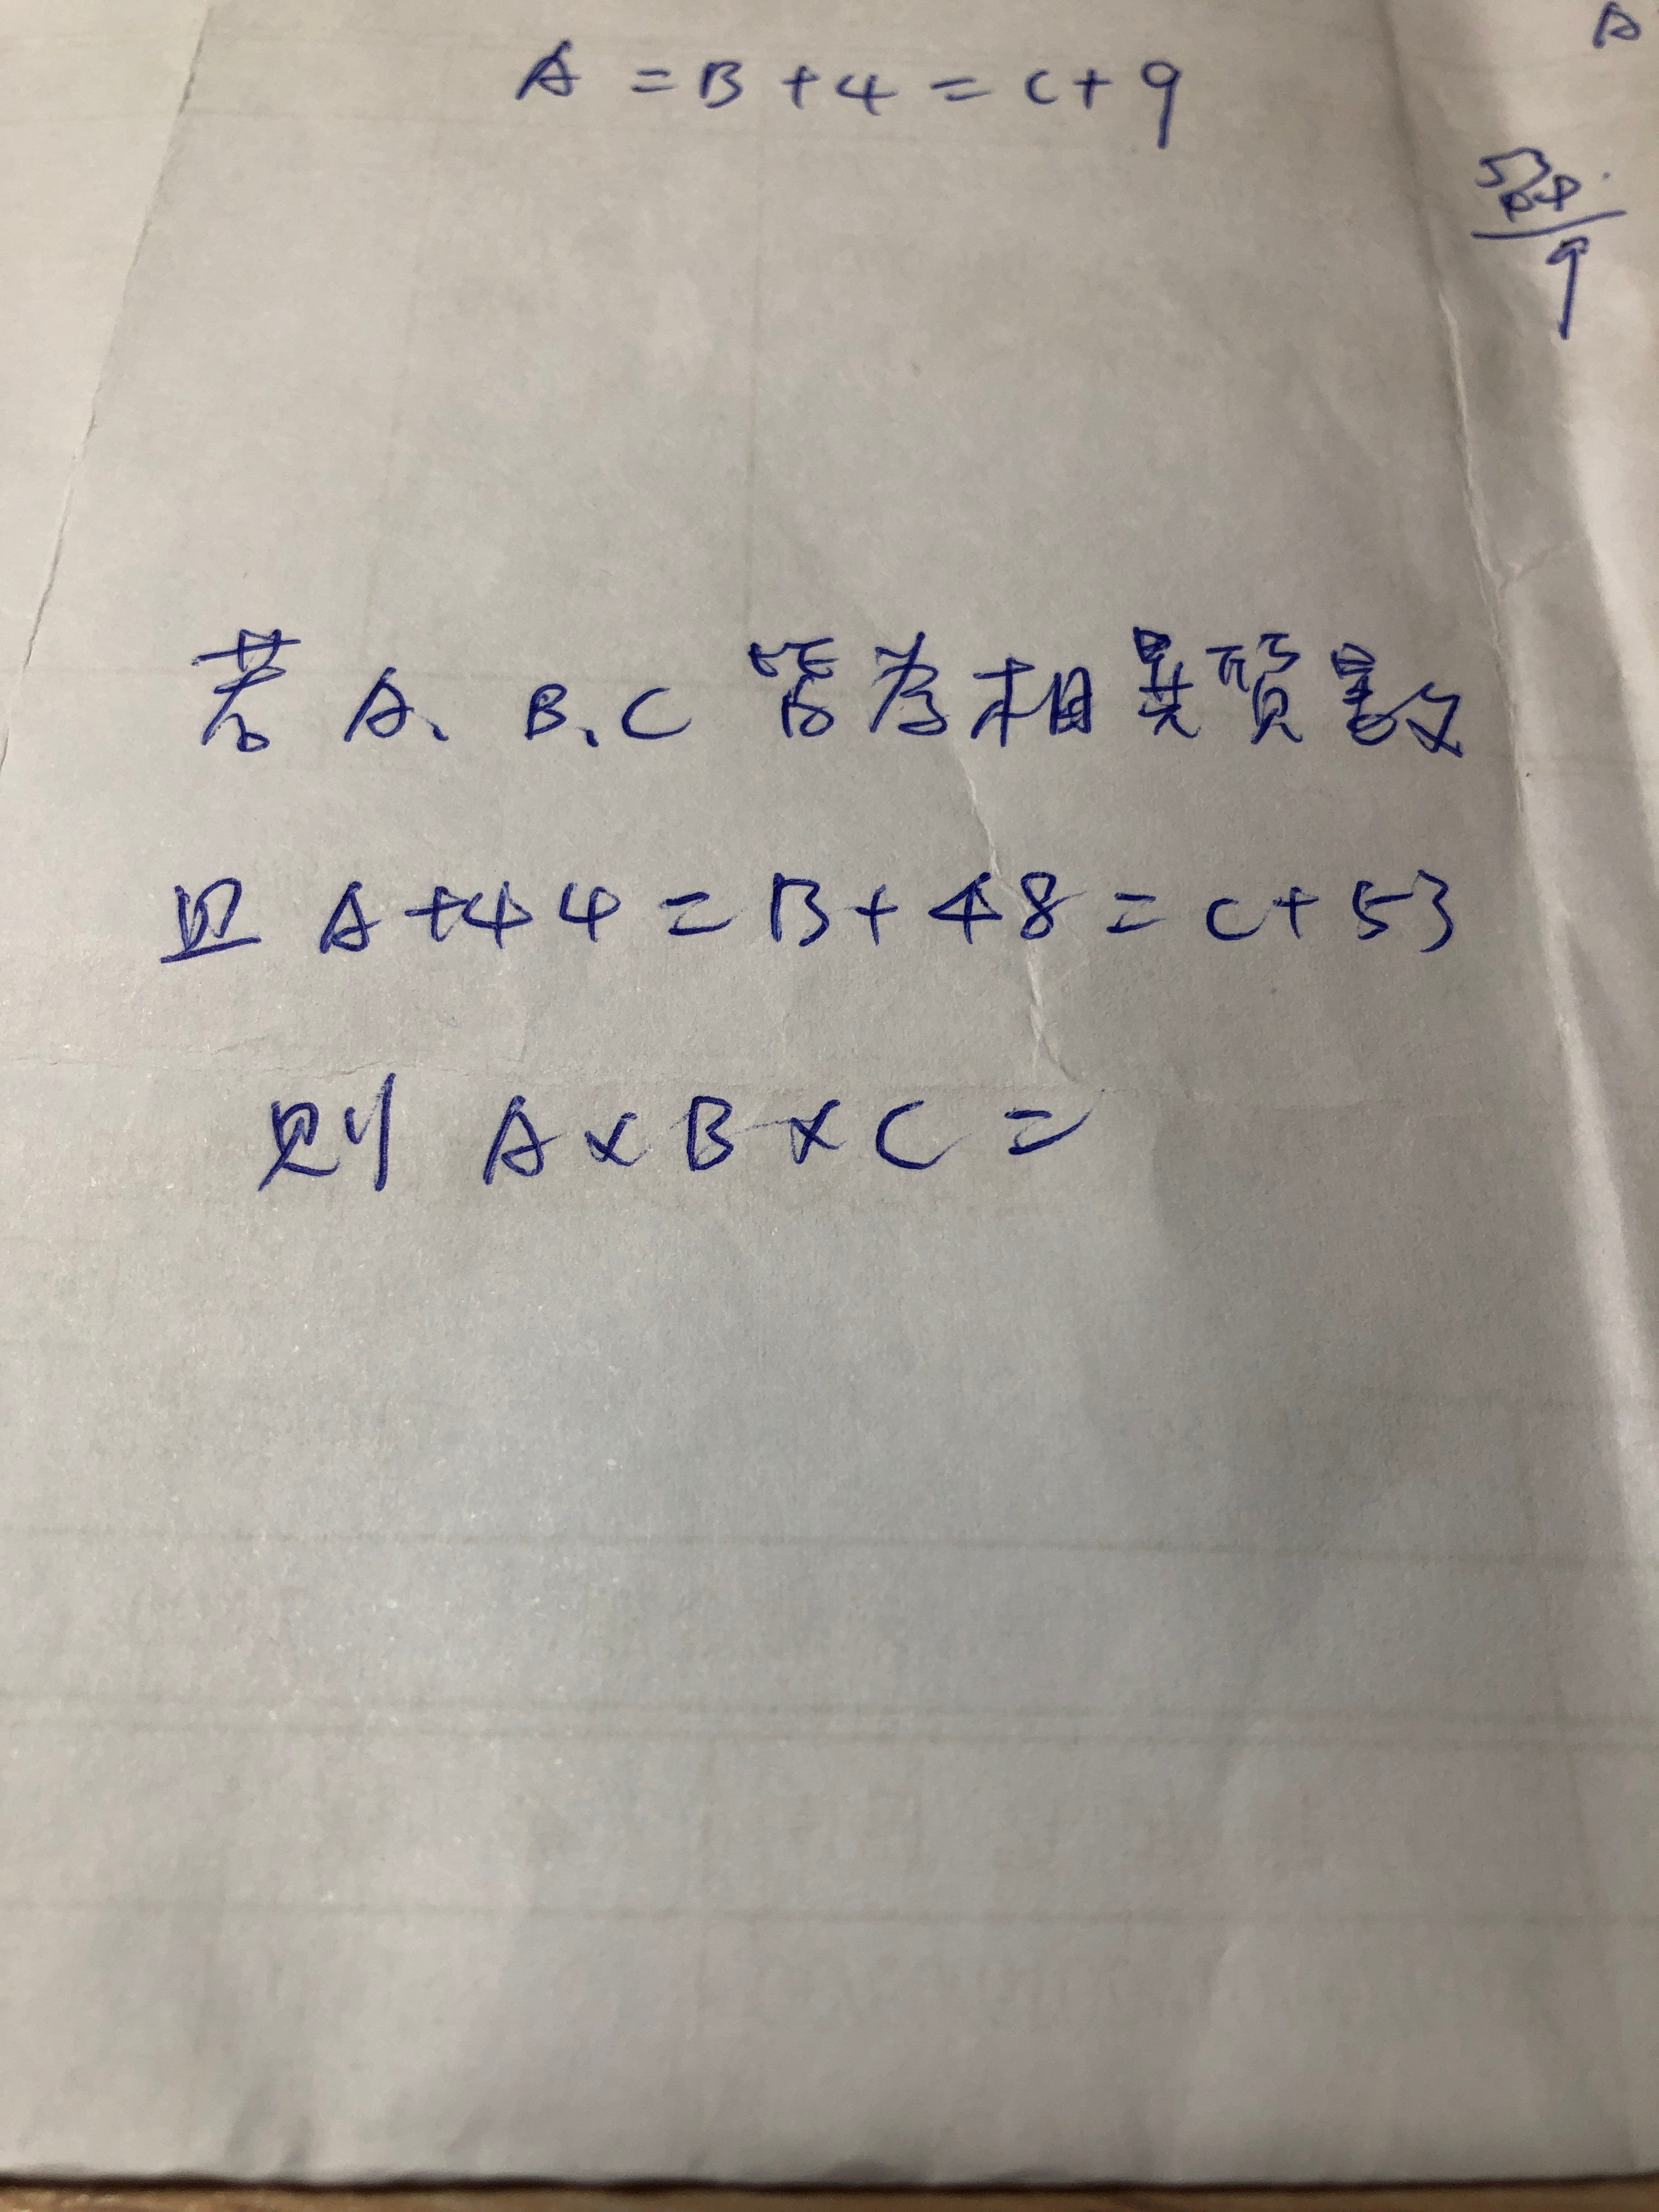 A
A = B + 4 = C + 9
9
若 A、B、C 皆為相異質數
且 A + 44 = B + 48 = C + 53
則 A × B × C =